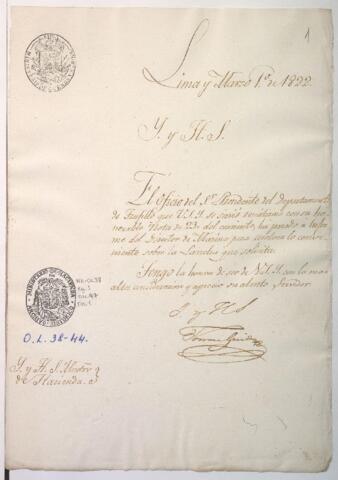 1
Lima y Marzo 1.º de 1822.
Y. y H. S.
El Oficio del S.r Presidente del Departamento
de Trujillo que V.S.Y. se sirvió remitirme con su ho-
norable Nota de 23 del corriente, ha pasado a infor-
me del Director de Marina para resolver lo conve-
niente sobre la Lancha que solicita.
Tengo la honra de ser de V.S.Y. con la mas
alta consideracion y aprecio su atento Servidor
Y. y H. S.
Tomas Guido
MINISTERIO DE HACIENDA
ARCHIVO HISTORICO
O.L. 38-44.
Y. y H. S. Mntro
de Hacienda. &